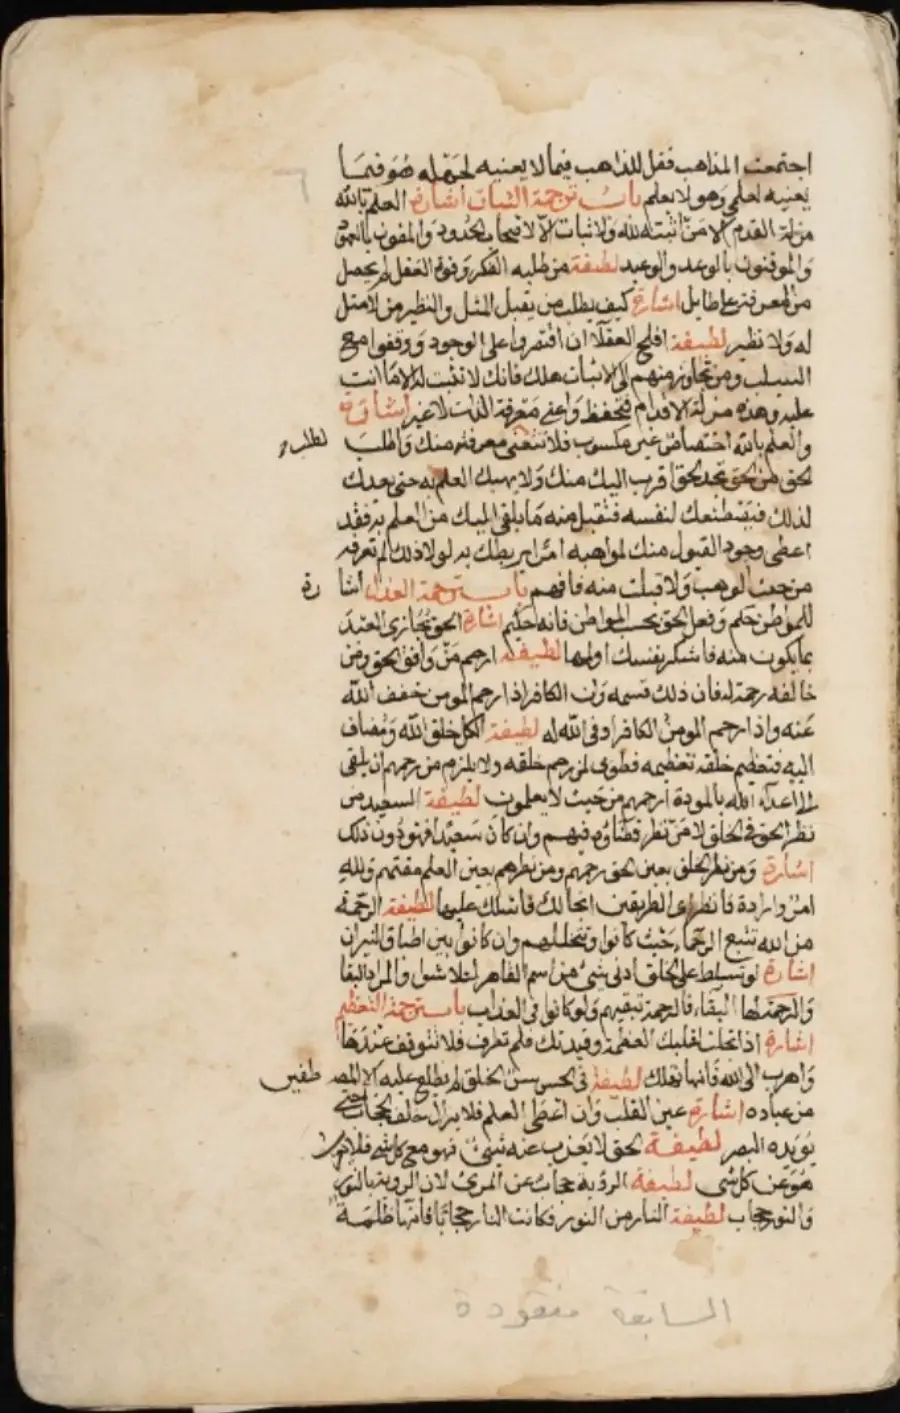 اجتمعت المذاهب فقل للذاهب فيما لا يعنيه لجهله هو فيما
يعنيه لعلمي وهو لا يعلم باب ترجمة الثبات اشارة العلم بالله
مزلة القدم الا من اثبته الله ولا ثبات الا لاصحاب الحدود والموفون بالعهود
والموقنون بالوعد والوعيد لطيفة من طلبه الفكر وقوة العقل لم يحصل
من المعرفة على طايل اشارة كيف يطلب من يقبل المثل والنظير من لا مثل
له ولا نظير لطيفة افلح العقلا ان اقتصروا على الوجود ووقفوا مع
السلب ومن تجاوز منهم الى الاثبات هلك فانك لا تثبت له الا ما انت
عليه وهذه مزلة الاقدام فتحفظ واعني معرفة الذات لا غير اشارة
والعلم بالله اختصاص غير مكسوب فلا تتعنى معرفته منك واطلب
الحق من الحق تجد الحق اقرب اليك منك ولا يهبك العلم به حتى يعدك
لذلك فيصطنعك لنفسه فتقبل منه ما يلقي اليك من العلم به فقد
اعطى وجود القبول منك لمواهبه امرا يربطك به لولا ذلك لم تعرفه
من حيث الوهب ولا قبلت منه فافهم باب ترجمة العدل اشا رة
للمواطن حكم وفعل الحق بحسب المواطن فانه حكيم اشارة الحق يجازي العبد
بما يكون منه فاشكر نفسك او لمها لطيفة ارحم من وافق الحق ومن
خالفه رحمة له فان ذلك قسمه وان الكافر اذا رحم المومن خفف الله
عنه واذا رحم المومن الكافر اوفى الله له لطيفة الكل خلق الله ومضاف
اليه فتعظيم خلقه تعظيمه فطوبى لمن رحم خلقه ولا يلزم من رحمهم ان يلقي
الى اعداء الله بالمودة ارحمهم من حيث لا يعلمون لطيفة السعيد من
نظر الحق في الخلق لا من نظر قضاؤه فيهم وان كان سعيدا فهو دون ذلك
اشارة ومن نظر الخلق بعين الحق رحمهم ومن نظرهم بعين العلم مقتهم ولله
امر وارادة فانظر اي الطريقين انجا لك فاسلك عليها لطيفة الرحمة
من الله تتبع الرحماء حيث كانوا وتتخللهم وان كانوا بين اطباق النيران
اشارة لو تسلط على الخلق ادنى شيء من اسم القاهر لتلاشوا والمراد البقا
والرحمة لها البقاء فالرحمة تبقيهم ولو كانوا في العذاب باب ترجمة التعظيم
اشارة اذا تجلت لقلبك العظمة وقيدتك فلم تعرف فلا تتوقف عندها
واهرب الى الله فانها تهلك لطيفة في الحس سر الخلق لم يطلع عليه الا المصطفين
من عباده اشارة عين القلب وان اعطى العلم فلا يزال خلف الحجاب حتى
يويده البصر لطيفة الحق لا يعزب عنه شيء فهو مع كل شيء
هو عن كل شي لطيفة الرؤية حجاب عن المرئ لان الروية بالنور
والنور حجاب لطيفة النار من النور فكانت النار حجابا فانها ظلمة
السابقة مفقودة